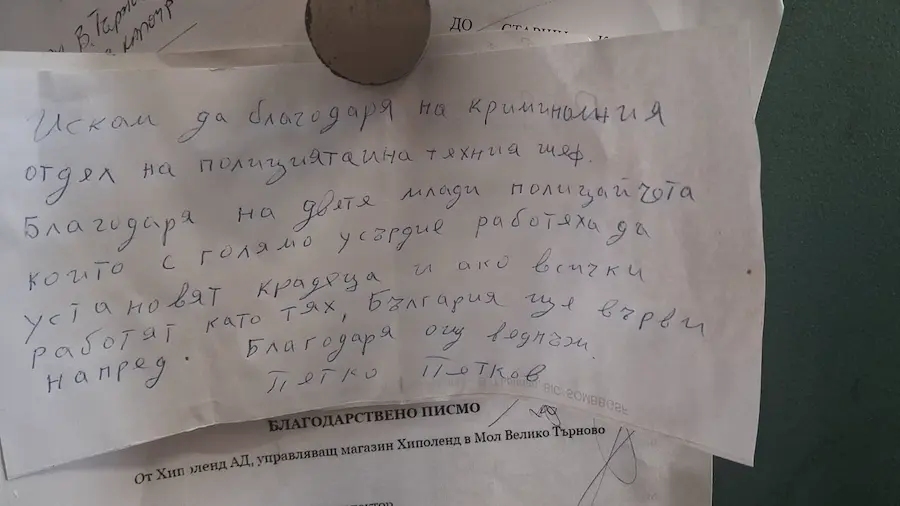 В. Търно
ДО
Искам да благодаря на криминалния
отдел на полицията и на техния шеф.
Благодаря на двете млади полицайчета
които с голямо усърдие работяха да
установят крадеца и ако всички
работят като тях, България ще върви
напред. Благодаря още веднъж.
Петко Петков
БЛАГОДАРСТВЕНО ПИСМО
От Хиполенд АД, управляващ магазин Хиполенд в Мол Велико Търново